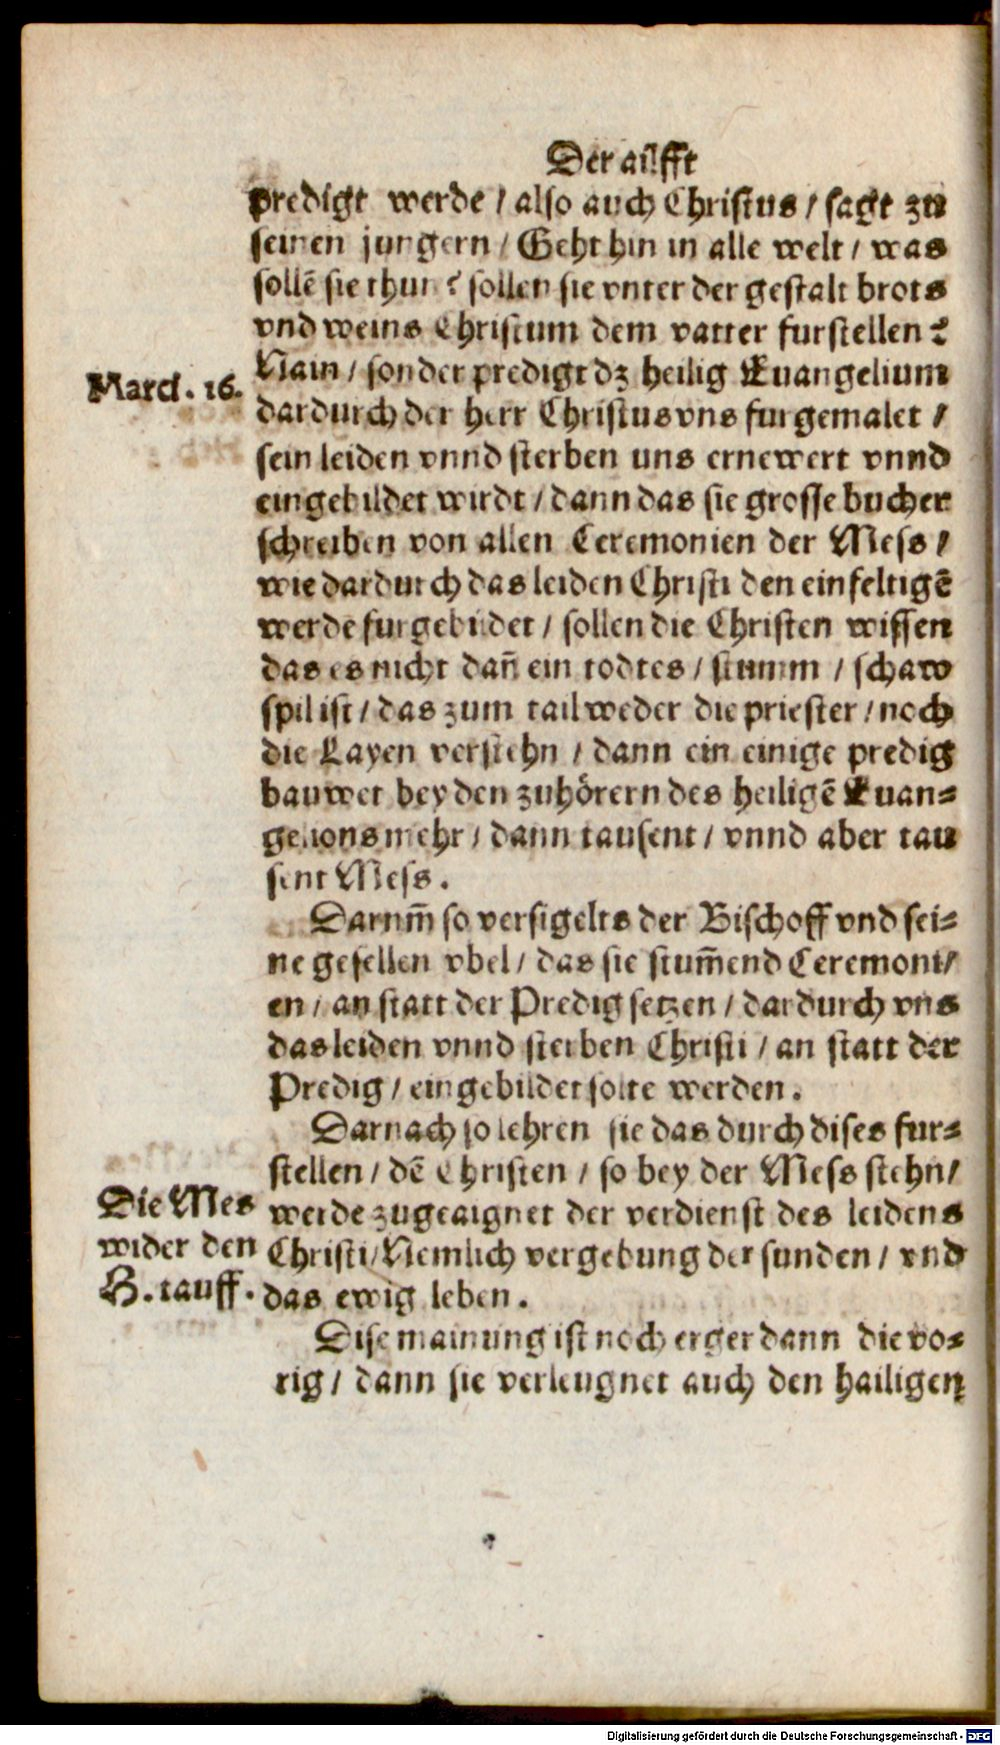 Der ailfft
predigt werde / also auch Christus / sagt zu
seinen jungern / Geht hin in alle welt / was
sollē sie thun? sollen sie vnter der gestalt brots
vnd weins Christum dem vatter furstellen?
Nain / sonder predigt dz heilig Euangelium
Marci. 16.
dardurch der herr Christus vns furgemalet /
sein leiden vnnd sterben uns ernewert vnnd
eingebildet wirdt / dann das sie grosse bucher
schreiben von allen Ceremonien der Mess /
wie dardurch das leiden Christi den einfeltigē
werde furgebildet / sollen die Christen wissen
das es nicht dañ ein todtes / stumm / schaw
spil ist / das zum tail weder die priester / noch
die Layen verstehn / dann ein einige predig
bauwet bey den zuhörern des heiligē Euan-
gelions mehr / dann tausent / vnnd aber tau
sent Mess.
Darum̄ so versigelts der Bischoff vnd sei-
ne gesellen vbel / das sie stum̄end Ceremoni/
en / an statt der Predig setzen / dardurch vns
das leiden vnnd sterben Christi / an statt der
Predig / eingebildet solte werden.
Darnach so lehren sie das durch dises fur-
stellen / dē Christen / so bey der Mess stehn/
Die Mes
wider den
H. tauff.
werde zugeaignet der verdienst des leidens
Christi / Nemlich vergebung der sunden / vnd
das ewig leben.
Dise mainung ist noch erger dann die vo-
rig / dann sie verleugnet auch den hailigen
Digitalisierung gefördert durch die Deutsche Forschungsgemeinschaft - DFG